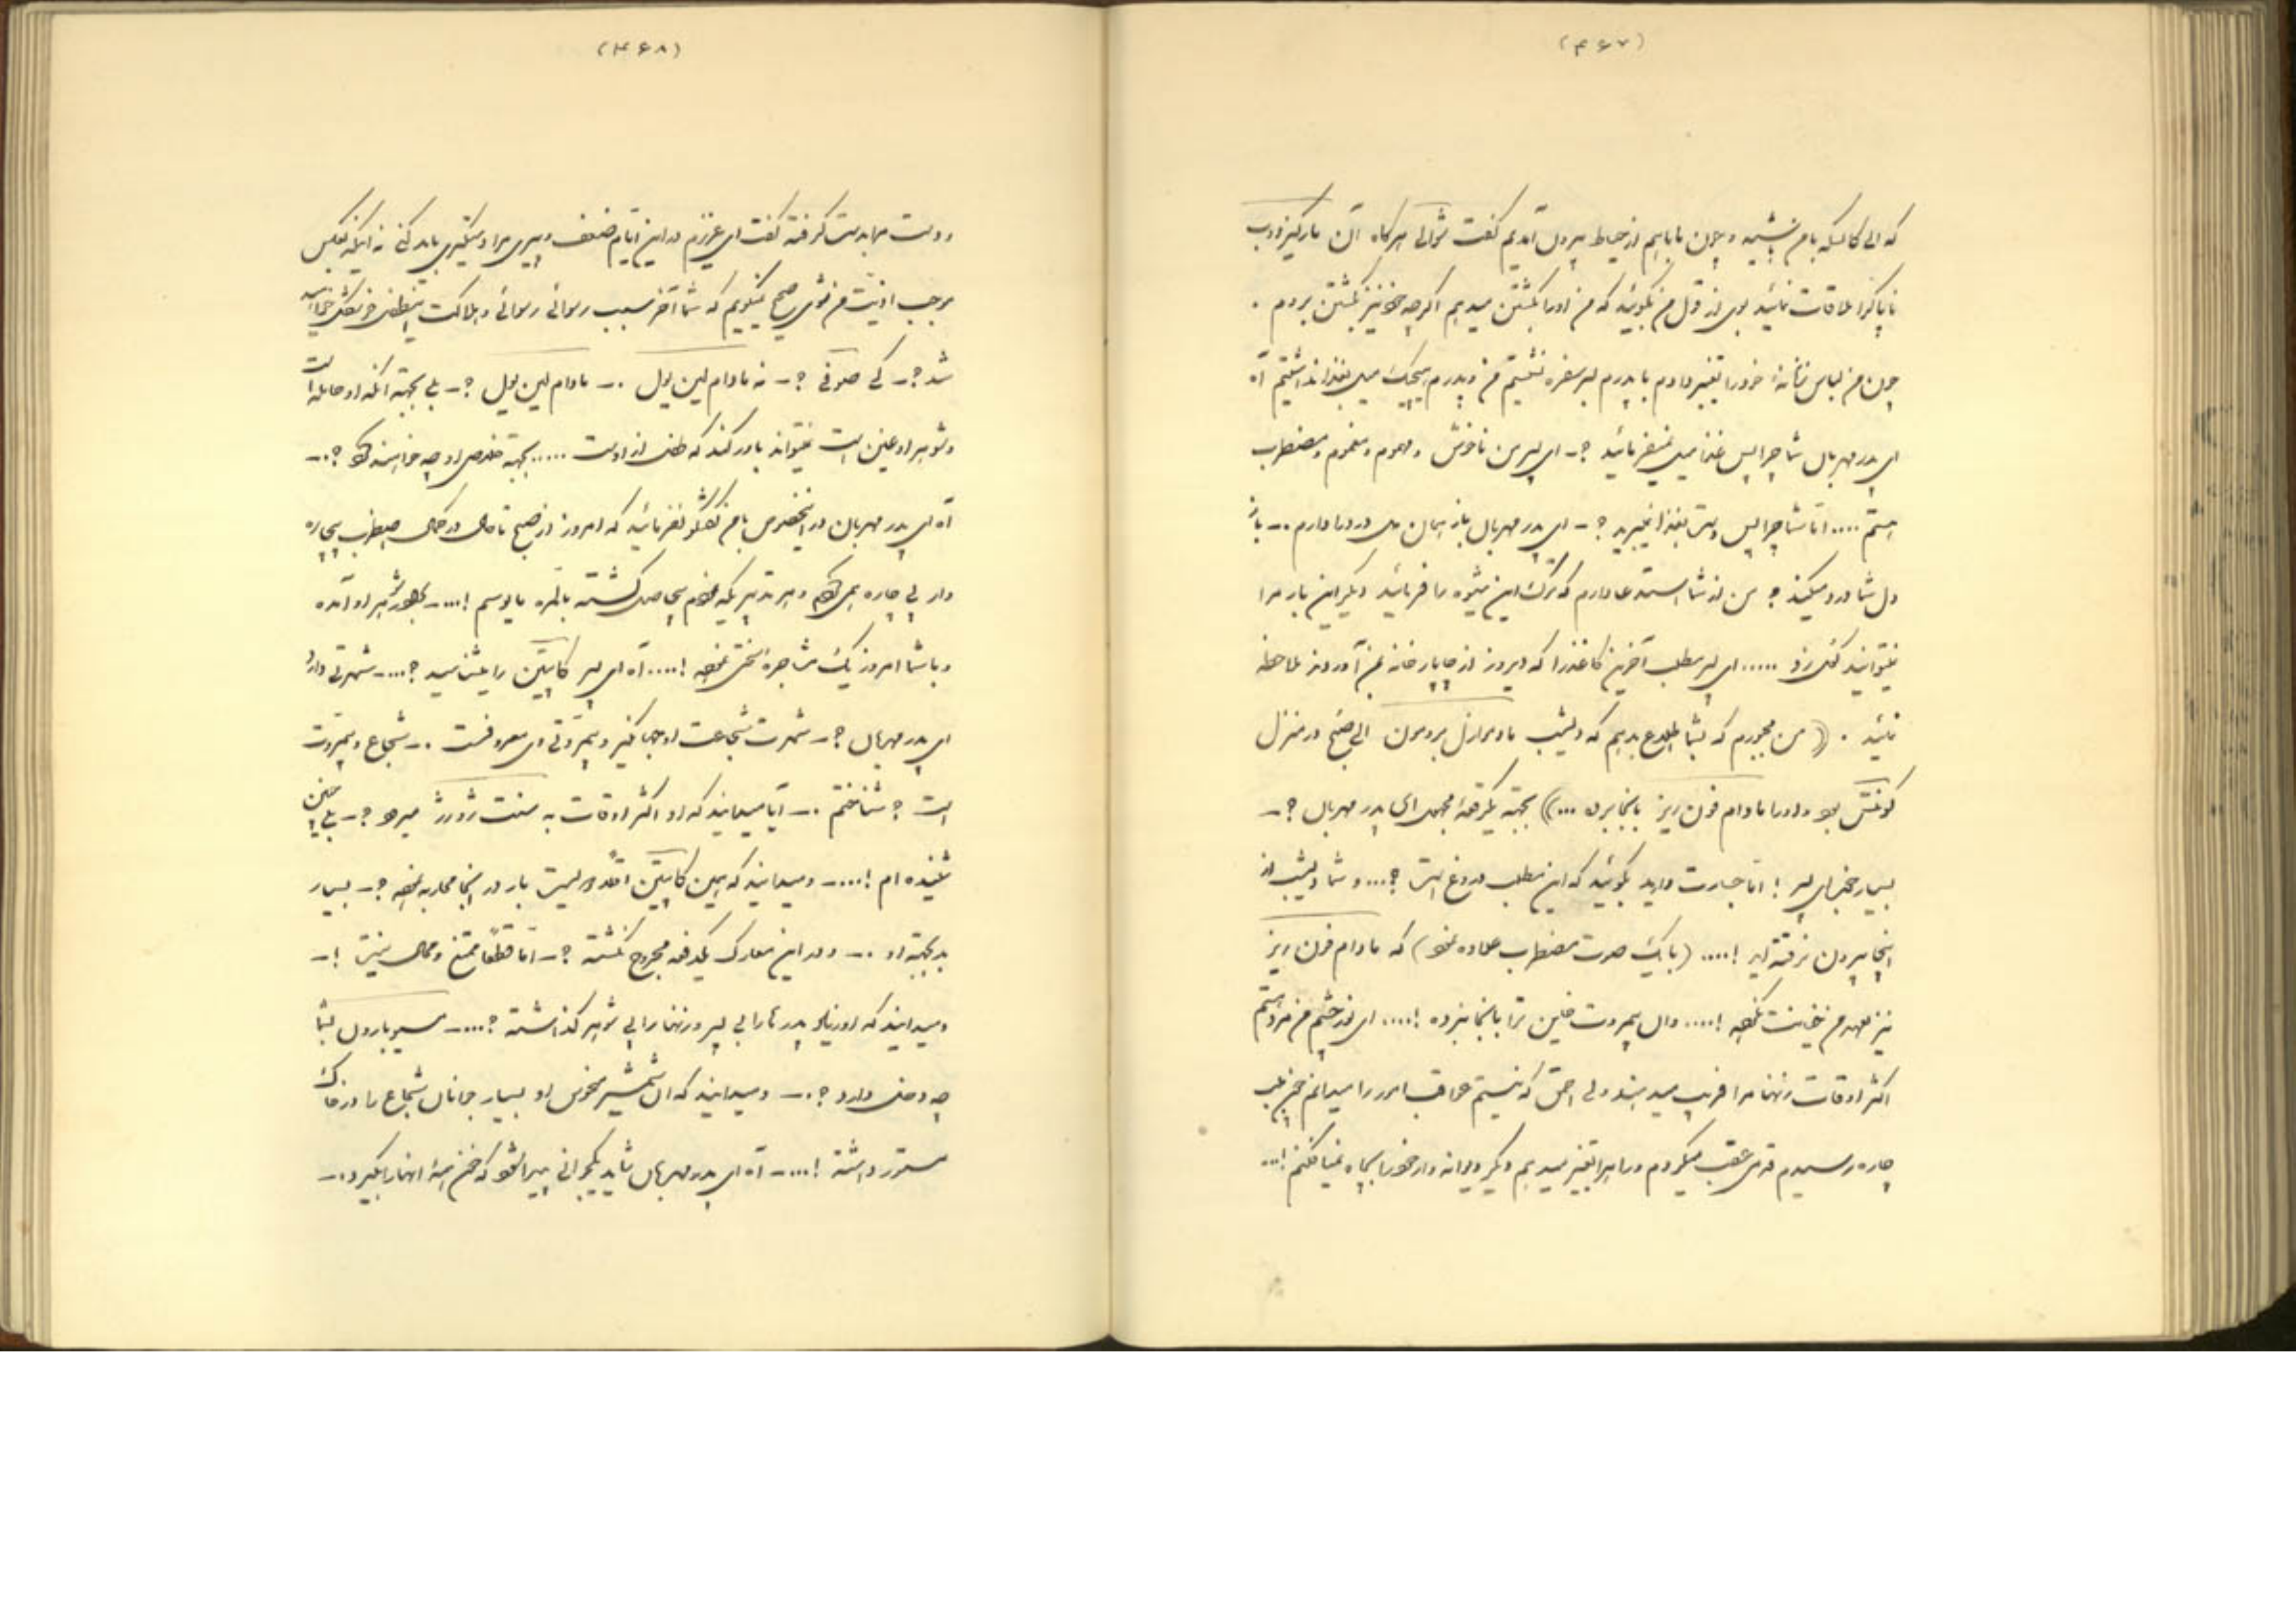 (۴۶۷)
که الی کالسکه با من بنشیند و چون ما باهم از حیاط بیرون آمدیم گفت شوالی هرگاه آن مارکیز
ناپاکرا ملاقات نمائید بوی از قول من بگوئید که من اورا بکشتن میدهم اگرچه خود نیز بکشتن بروم .
چون من لباس خودرا تغییر دادم با پدرم بسر سفره نشستیم من و پدرم هیچیک میل بغذا نداشتیم آه
ای پدر مهربان شما چرا پس غذا میل نمیفرمائید ؟ـ ای پسر من ناخوش و مهموم و مغموم و مضطرب
هستم .... اما شما چرا پس دست بغذا نمیبرید ؟ـ ای پدر مهربان باز همان دل درد را دارم .ـ باز
دل شما درد میکند ؟ من از شما استدعا دارم که ترک این شیوه را فرمائید دیگر این بار مرا
نمیتوانید گول زد ..... ای پسر مطلب آخرین کاغذرا که دیروز از چاپارخانه بمن آوردند ملاحظه
نمائید . (( من مجبورم که بشما اطلاع بدهم که دیشب مادموازل بردمون الی صبح در منزل
کونتس بود و اورا مادام فون ریز بانجا برده ...)) بجهة یکرقعهٔ مجهول ای پدر مهربان ؟ـ
بسیار خوب ای پسر ! اما جسارت دارید بگوئید که این مطلب دروغ است ؟... و شما دیشب از
اینجا بیرون نرفته اید !.... (با یک صوت مضطرب علاوه نمود) که مادام فون ریز
نیز بعهد من خیانت نموده !.... وان بیمروت خاین ترا بانجا برده !.... ای نور چشم من
اکثر اوقات زنها مرا فریب میدهند ولی احمق که نیستم عواقب امور را میدانم چون بلب
چاه رسیدم قدمی عقب میگردم و راهرا تغییر میدهم دیگر دیوانه وار خودرا بچاه نمیافکنم !...
(۴۶۸)
و دست مرا بدست گرفته گفت ای عزیزم در این ایام ضعف و پیری مرا دستگیری باید کنی نه اینکه بعکس
موجب اذیت من شوی صحیح میگویم که شما آخر سبب رسوائی رسوائی و هلاکت
شد ؟ـ کی صوفی ؟ـ نه مادام لین یول .ـ مادام لین یول ؟ـ بلی بجهة آنکه او حامله است
و شوهر او عنین است نمیتواند باور کند که طفل از اوست ..... بجهة خلاصی او چه خواهند کرد ؟.ـ
آه ای پدر مهربان در اینخصوص با من گفتگو نفرمائید که امروز از صبح تا حال در کمال اضطراب بیچاره
وار پی چاره میگردم و هر تدبیریکه نمودم بیحاصل گشته بالمره مایوسم !...ـ شوهر او آمده
و با شما امروز یک مشاجرهٔ سختی نموده !.... آه ای پسر کاپیتن را میشناسید ؟...ـ شهرتی دارد
ای پدر مهربان ؟ـ شهرت شجاعت او جهانگیر و بیمروتی وی معروفست .ـ شجاع و بیمروت
است ؟ شناختم .ـ آیا میدانید که او اکثر اوقات به سنت ژورژ میرود ؟ـ بلی چنین
شنیده ام !...ـ و میدانید که همین کاپیتن اقلاً بیست بار در اینجا محاربه نموده ؟ـ بسیار
بد بجهة او .ـ و در این معارک یکدفعه مجروح نگشته ؟ـ اما قطعاً ممتنع و محال نیست !ـ
و میدانید که او زیاد پدرهارا بی پسر و زنهارا بی شوهر گذاشته ؟...ـ مسیو بارون بشما
چه دخلی دارد ؟.ـ و میدانید که آن شمشیر منحوس او بسیار جوانان شجاع را در خاک
مستور داشته !...ـ آه ای پدر مهربان شاید یکجوانی پیدا شود که خون همهٔ انهارا بگیرد .ـ